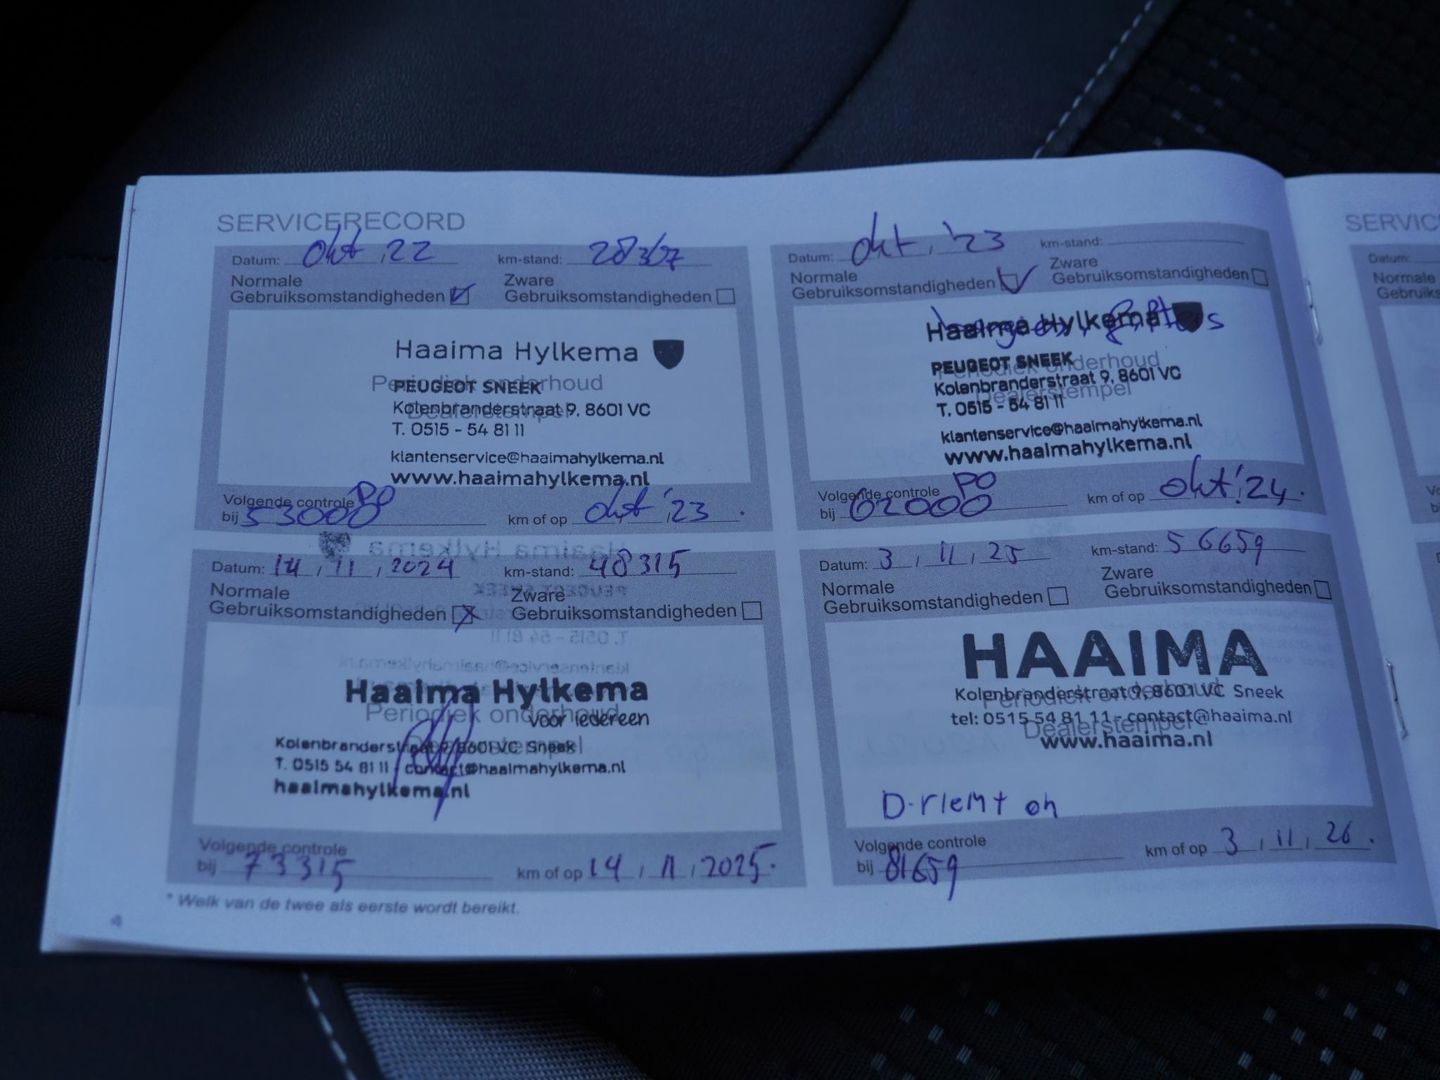 SERVICERECORD
Datum: okt '22 km-stand: 28367
Normale
Gebruiksomstandigheden
Zware
Gebruiksomstandigheden
Haaima Hylkema
Periodiek onderhoud
PEUGEOT SNEEK
Dealerstempel
Kolenbranderstraat 9. 8601 VC
T. 0515 - 54 81 11
klantenservice@haaimahylkema.nl
www.haaimahylkema.nl
Volgende controle
bij 53000 km of op okt '23.
Datum: okt. '23 km-stand:
Normale
Gebruiksomstandigheden
Zware
Gebruiksomstandigheden
Haaima Hylkema
PEUGEOT SNEEK
Periodiek onderhoud
Kolenbranderstraat 9. 8601 VC
Dealerstempel
T. 0515 - 54 81 11
klantenservice@haaimahylkema.nl
www.haaimahylkema.nl
Volgende controle
bij 62000 km of op okt '24.
Datum: 14, 11, 2024 km-stand: 48315
Normale
Gebruiksomstandigheden
Zware
Gebruiksomstandigheden
Haaima Hylkema
Periodiek onderhoud
voor iedereen
Kolenbranderstraat 9, 8601 VC Sneek
Dealerstempel
T. 0515 54 81 11 - contact@haaimahylkema.nl
haaimahylkema.nl
Volgende controle
bij 73315 km of op 14, 11, 2025.
Datum: 3, 11, 25 km-stand: 56659
Normale
Gebruiksomstandigheden
Zware
Gebruiksomstandigheden
HAAIMA
Kolenbranderstraat 9, 8601 VC Sneek
Periodiek onderhoud
tel: 0515 54 81 11 - contact@haaima.nl
Dealerstempel
www.haaima.nl
D-riemt oh
Volgende controle
bij 81659 km of op 3, 11, 26.
* Welk van de twee als eerste wordt bereikt.
4
SERVIC
Datum:
Normale